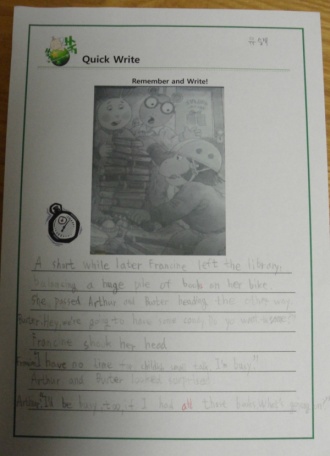 Quick Write
Remember and Write!
A short while later Francine left the library,
balancing a huge pile of books on her bike.
She passed Arthur and Buster heading the other way.
Buster: Hey, we're going to have some candy. Do you want some?"
Francine shook her head
"I have no time to dilly dally, I'm busy."
Arthur and Buster looked surprised
Arthur: "I'll be busy, too, if I had all those books. What's going on?"